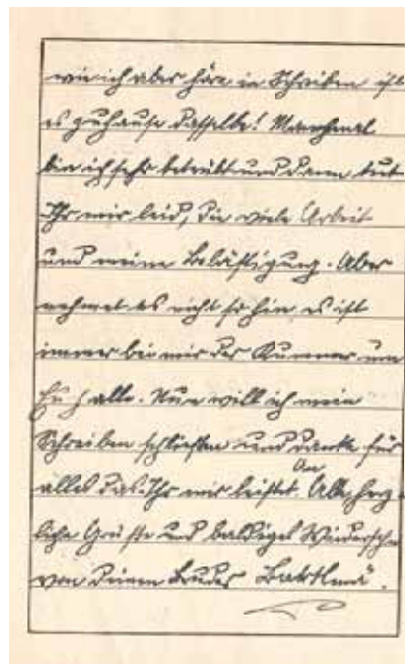 wie ich aber höre in Schreiben ist
es zuhause dasselbe! Manchmal
bin ich sehr betrübt und dann tut
Ihr mir leid, die viele Arbeit
und meine Belästigung. Aber
nehmet es nicht so hin, es ist
immer bei mir der Kummer um
Euch alle. Nun will ich mein
Schreiben schließen und danke für
alles das Ihr mir leistet. An
Alle herz-
liche Grüße und baldiges Wiedersehn
von Deinem Bruder